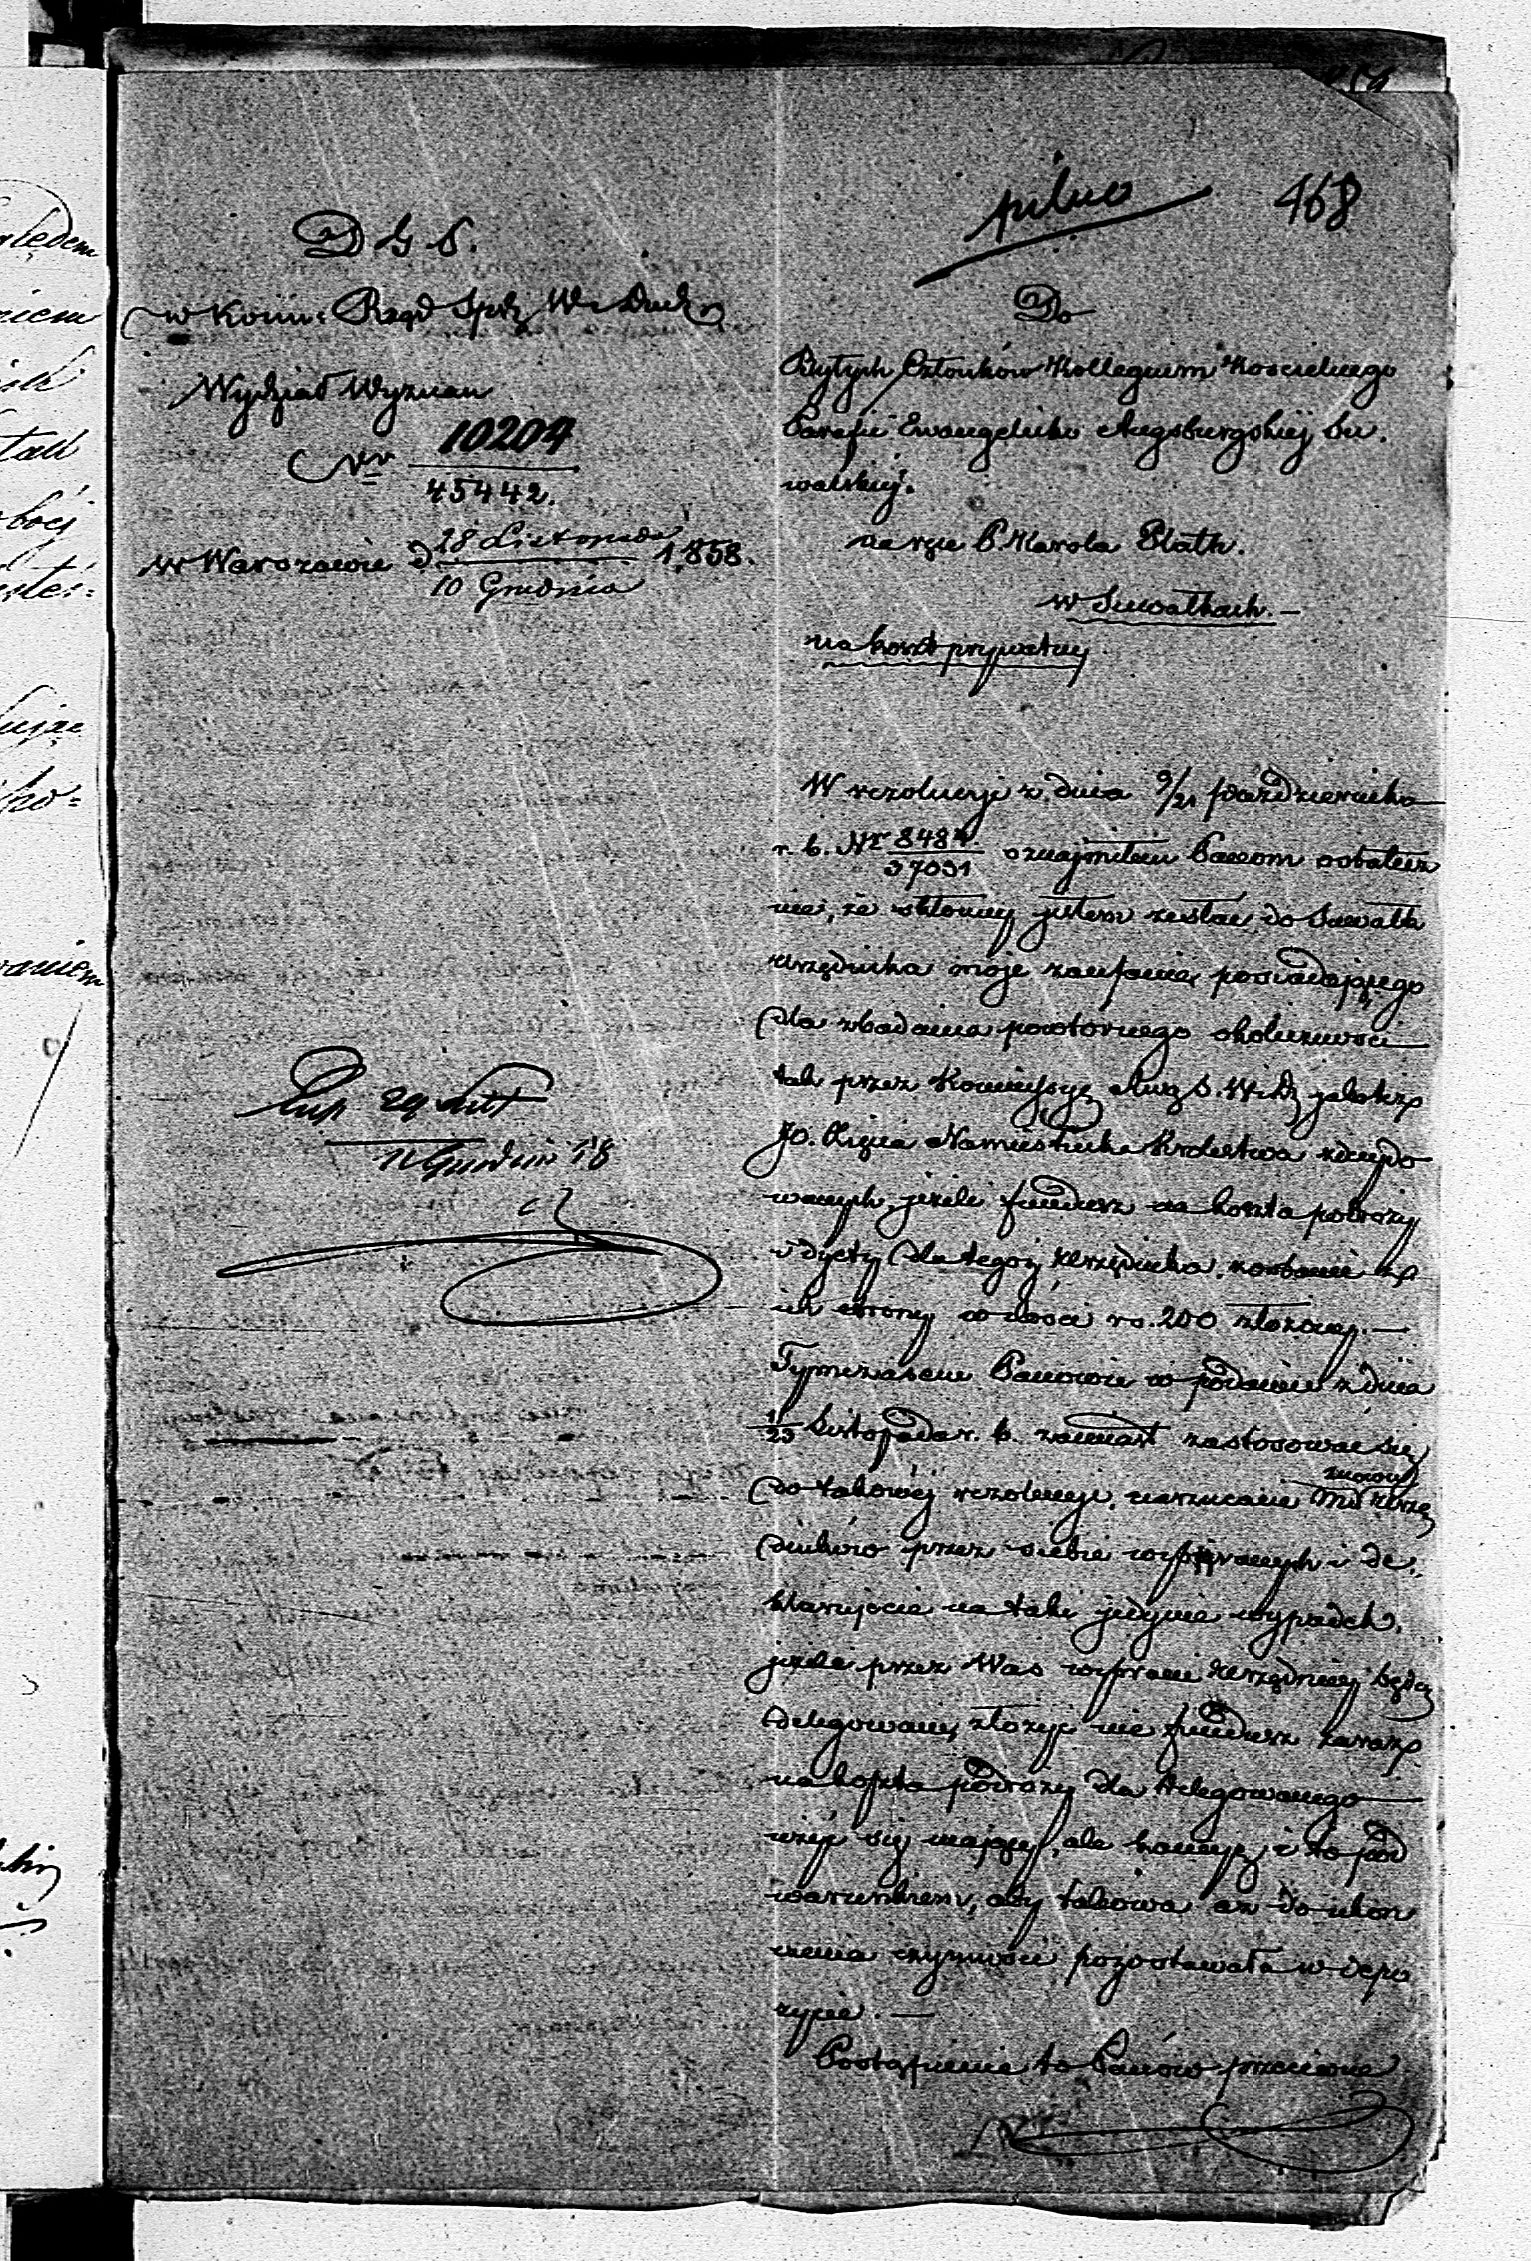 pilno
468
D G S.
w Kom: Rząd Spr. We Duch
Wydział Wyznań
Nr 10204
45442.
w Warszawie d 28 Listopada 1858.
10 Grudnia
Exp. 29 List
11 Grudnia 58
Do
Byłych Członków Kollegium Kościelnego
Parafii Ewangelicko Augsburgskiej Su.
walskiej.
na ręce P. Karola Plath.
w Suwałkach. –
na koszt prywatny
W rezolucyi z dnia 9/21 Października
r. b. Nr 8484
37031 oznajmiłem Panom ostatecz
nie, że skłonny jestem zesłać do Suwałk
urzędnika moje zaufanie posiadającego
dla zbadania powtórnego okoliczności
tak przez Kommissyę Rząd S. W. D. jakoteż
JO. Xięcia Namiestnika Królestwa zdecydo
wanych, jeżeli fundusz na koszta podróży
i dyety dla tegoż urzędnika, zostanie z
ich strony w ilości rs. 200 złożony. —
Tymczasem Panowie w podaniu z dnia
11/23 Listopada r. b. zamiast zastosować się
do takowéj rezolucyi, narzucacie mi znowu Urzę
dników przez siebie wybranych i de„
klarujecie na taki jedynie wypadek,
jeżeli przez Was wybrani Urzędnicy będą
delegowani, złożyć nie fundusz zaraz
na koszta podróży dla delegowanego
użyć się mający, ale kaucyę i to pod
warunkiem, aby takowa aż do ukoń
czenia czynności pozostawała w depo
zycie. —
Postąpienie to Panów przeciwne